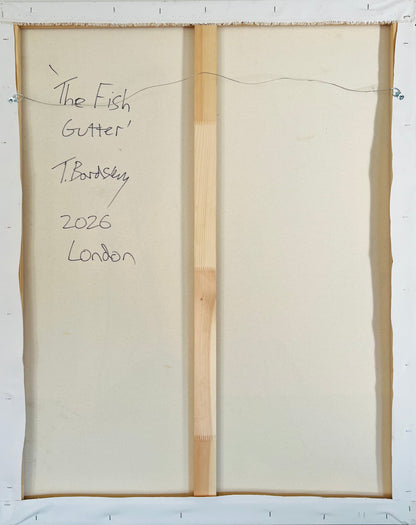 'The Fish
Gutter'
T. Bardsky
2026
London